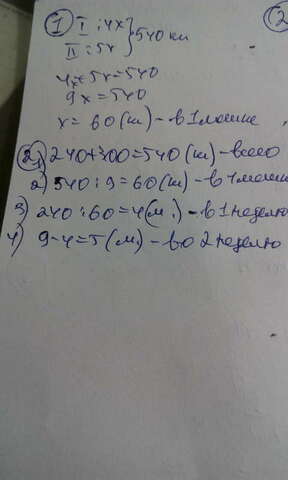 ① I : 4x } 540 км
II : 5x
②
4x+5x=540
9x=540
x= 60 (т) - в 1 машине
② 1) 240+300=540(т) - всего
2) 540:9=60(т) - в 1 машин
3) 240:60=4(м.) - в 1 неделю
4) 9-4=5(м.) - во 2 неделю